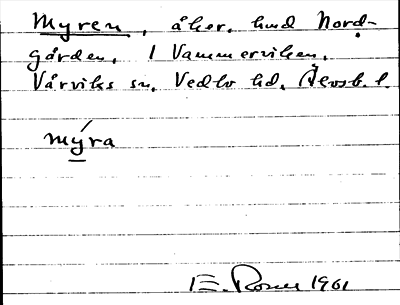 Myren, åker, hmd Nord-
gården, 1 Vammerviken,
Vårviks sn, Vedbo hd, Älvsb. l.
mýra
E. Rosen 1961